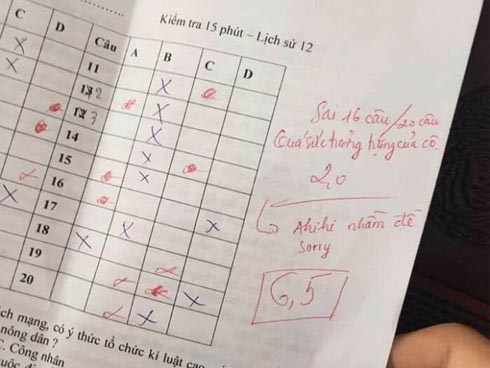 Kiểm tra 15 phút – Lịch sử 12
C D Câu A B C D
11
12
13
14
15
16
17
18
19
20
Sai 16 câu/20 câu
Quá sức tưởng tượng của cô.
2,0
Ahihi nhầm đề
sorry
6,5
ách mạng, có ý thức tổ chức kỉ luật cao
nông dân ?
C. Công nhân